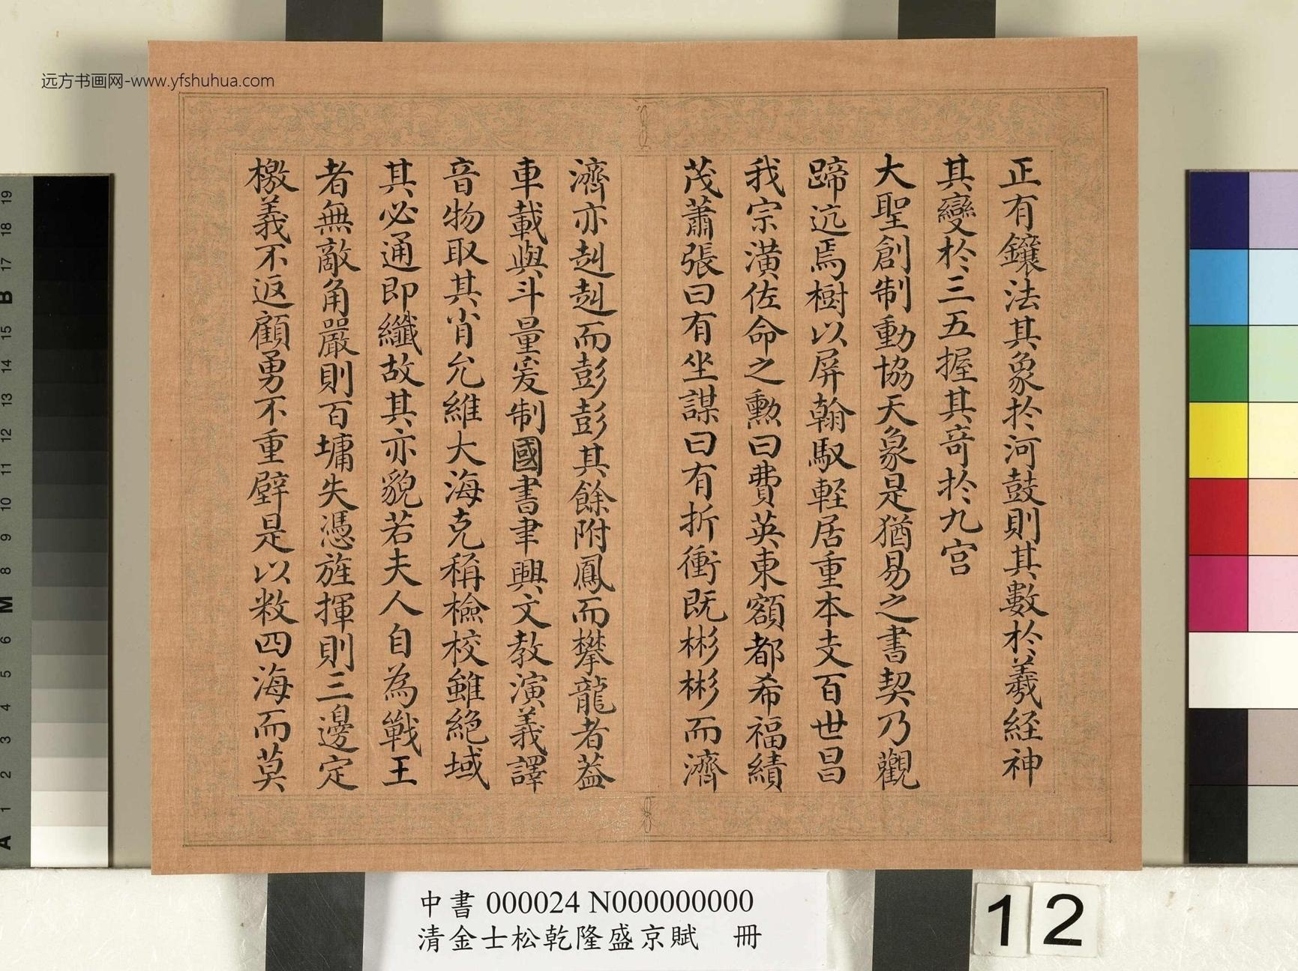 远方书画网-www.yfshuhua.com
正有鑲法其象於河鼓則其數於羲經神
其變於三五握其奇於九宮
大聖創制動協天象是猶易之書契乃觀
蹄迒焉樹以屏翰馭軽居重本支百世昌
我宗潢佐命之勲曰費英東額都希福績
茂蕭張曰有坐謀曰有折衝既彬彬而濟
濟亦赳赳而彭彭其餘附鳳而攀龍者葢
車載與斗量爰制國書聿興文教演義譯
音物取其肖允維大海克稱檢校雖絶域
其必通即纖故其亦貌若夫人自為戰王
者無敵角嚴則百墉失憑旌揮則三邊定
檄義不返顧勇不重壁是以敉四海而莫
中書 000024 N000000000
清金士松乾隆盛京賦 冊
12
19
18
17
B
15
14
13
12
11
10
9
8
M
6
5
4
3
2
1
A